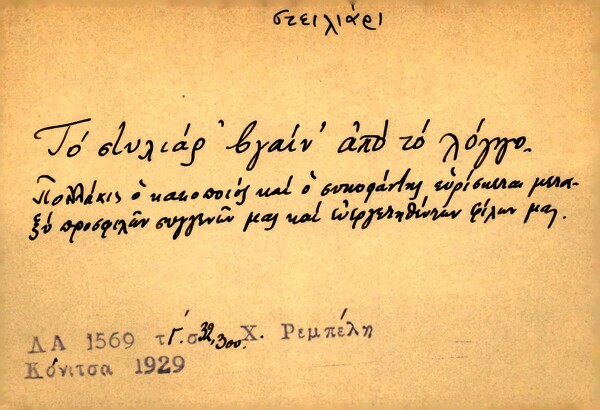 στειλιάρι
Τό στυλιάρ' βγαίν' ἀπό τό λόγγο.
Πολλάκις ὁ κακοποιός καί ὁ συκοφάντης εὑρίσκεται μετα-
ξύ προσφιλῶν συγγενῶν μας καί εὐεργετηθέντων φίλων μας.
ΛΑ 1569 τΓ'. σ 32, 300. Χ. Ρεμπέλη
Κόνιτσα 1929